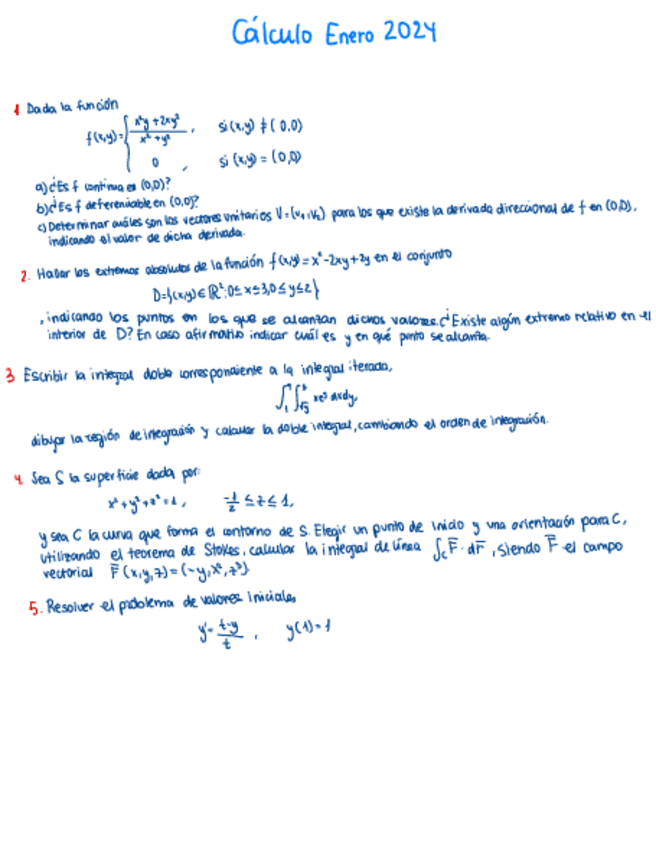 Cálculo Enero 2024
1 Dada la función
f(x,y)= { x²y + 2xy² / x² + y² , si (x,y) ≠ (0,0)
0 , si (x,y) = (0,0)
a) ¿Es f continua es (0,0)?
b) ¿Es f deferenciable en (0,0)?
c) Determinar cuáles son los vectores unitarios V=(v₁,v₂) para los que existe la derivada direccional de f en (0,0),
indicando el valor de dicha derivada.
2. Hallar los extremos absolutos de la función f(x,y)=x²-2xy+2y en el conjunto
D={(x,y)∈ℝ²; 0≤x≤3, 0≤y≤2}
, indicando los puntos en los que se alcanzan dichos valores. ¿Existe algún extremo relativo en el
interior de D? En caso afirmativo indicar cuál es y en qué punto se alcanza.
3 Escribir la integral doble correspondiente a la integral iterada,
∫₁ ∫ dxdy,
dibujar la región de integración y calcular la doble integral, cambiando el orden de integración.
4. Sea S la superficie dada por:
x² + y² + z² = 1 , -1/2 ≤ z ≤ 1,
y sea C la curva que forma el contorno de S. Elegir un punto de inicio y una orientación para C,
utilizando el teorema de Stokes, calcular la integral de línea ∫c F̄ · dr̄ , siendo F̄ el campo
vectorial F̄(x,y,z)=(-y,x²,z³).
5. Resolver el problema de valores iniciales
y'= t-y / t , y(1)=1